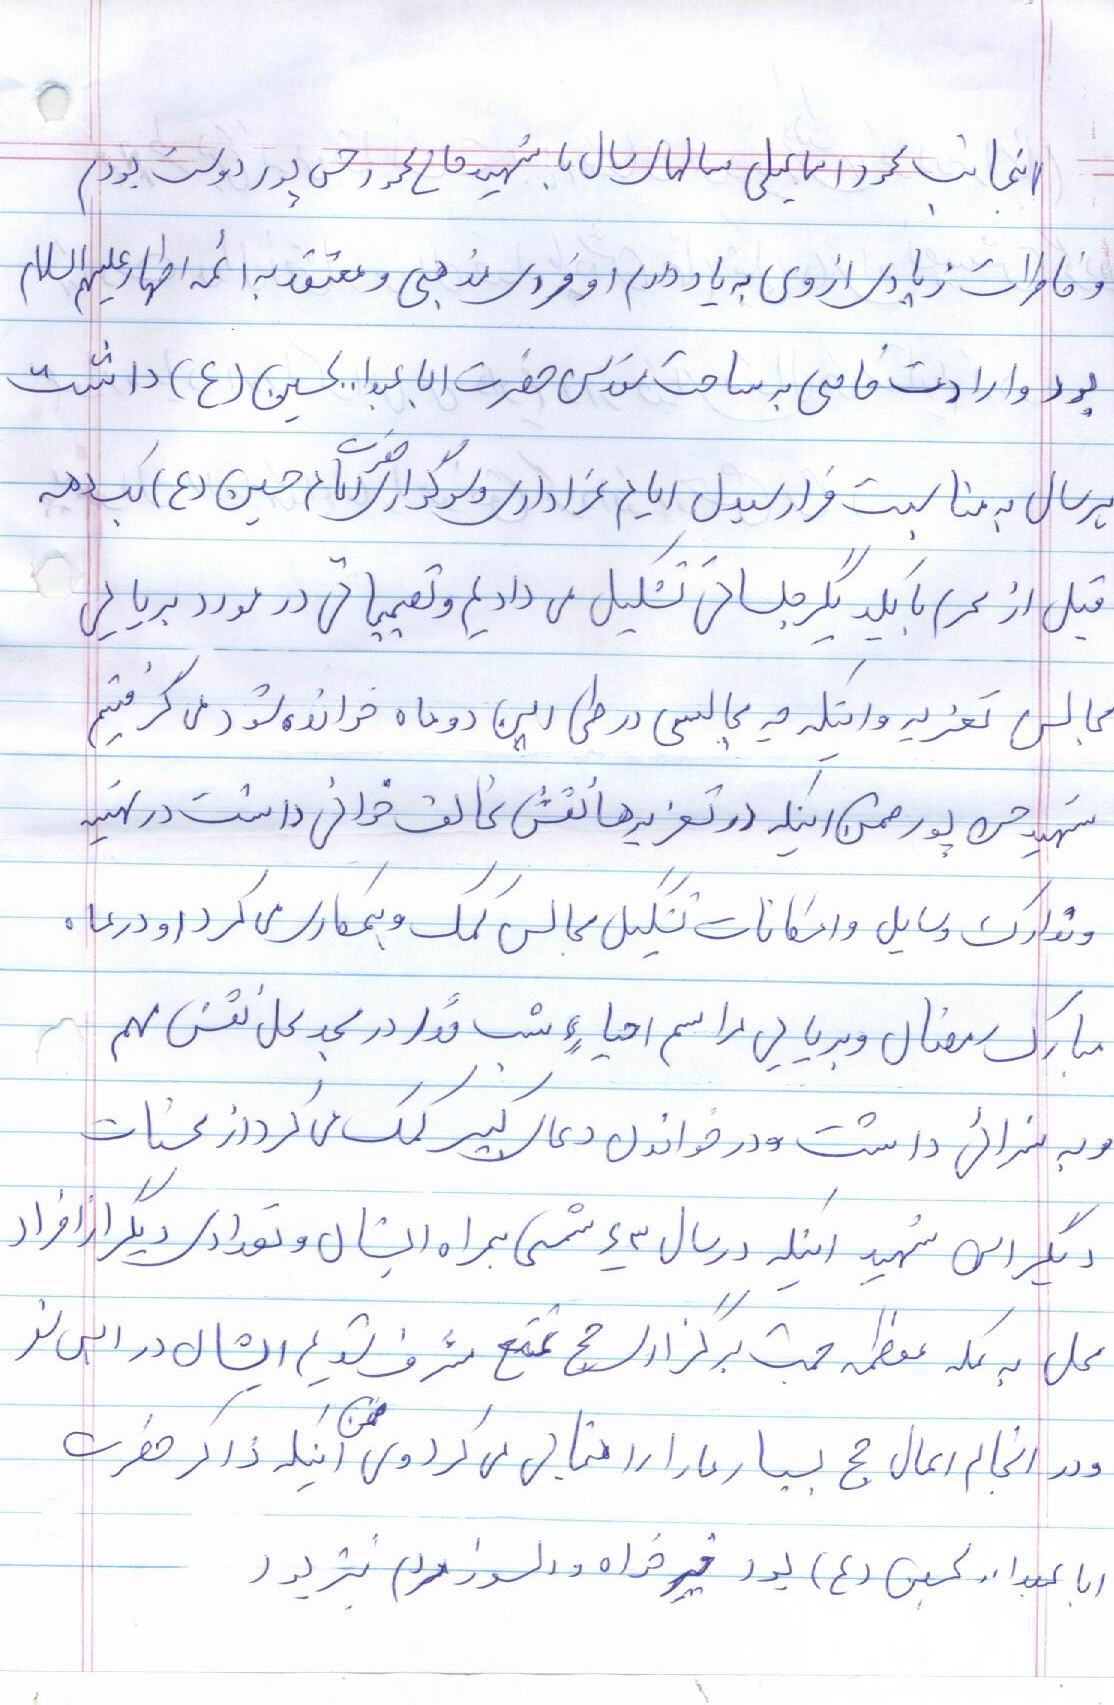 اینجانب محمود اسماعیلی سالهای سال با شهید حاج محمود حسن پور دوست بودم
و خاطرات زیادی از وی به یاد دارم او فردی مذهبی و معتقد به ائمه اطهار علیهم السلام
بود و ارادت خاصی به ساحت مقدس حضرت ابا عبدا.. الحسین (ع) داشت
هر سال به مناسبت فرا رسیدن ایام عزاداری و سوگواری حضرت امام حسین (ع) یک دهه
قبل از محرم با یکدیگر جلساتی تشکیل می دادیم و تصمیماتی در مورد برپایی
مجالس تعزیه و اینکه چه مجالسی در طی این دو ماه خوانده شود می گرفتیم
شهید حسن پور ضمن اینکه در تعزیه ها نقش مخالف خوانی داشت در تهیه
و تدارک وسایل و امکانات تشکیل مجالس کمک و همکاری می کرد او در ماه
مبارک رمضان و برپایی مراسم احیاءِ شب قدر در مسجد محل نقش مهم
و به سزائی داشت و در خواندن دعای کبیر کمک می کرد از محسنات
دیگر این شهید اینکه در سال ۶۳ شمسی همراه ایشان و تعدادی دیگر از افراد
محل به مکه معظمه جهت برگزاری حج تمتع مشرف شدیم ایشان در این سفر
و در انجام اعمال حج بسیار ما را راهنمایی می کرد وی ضمن اینکه ذاکر حضرت
ابا عبدا.. الحسین (ع) بود خیر خواه و دلسوز مردم نیز بود